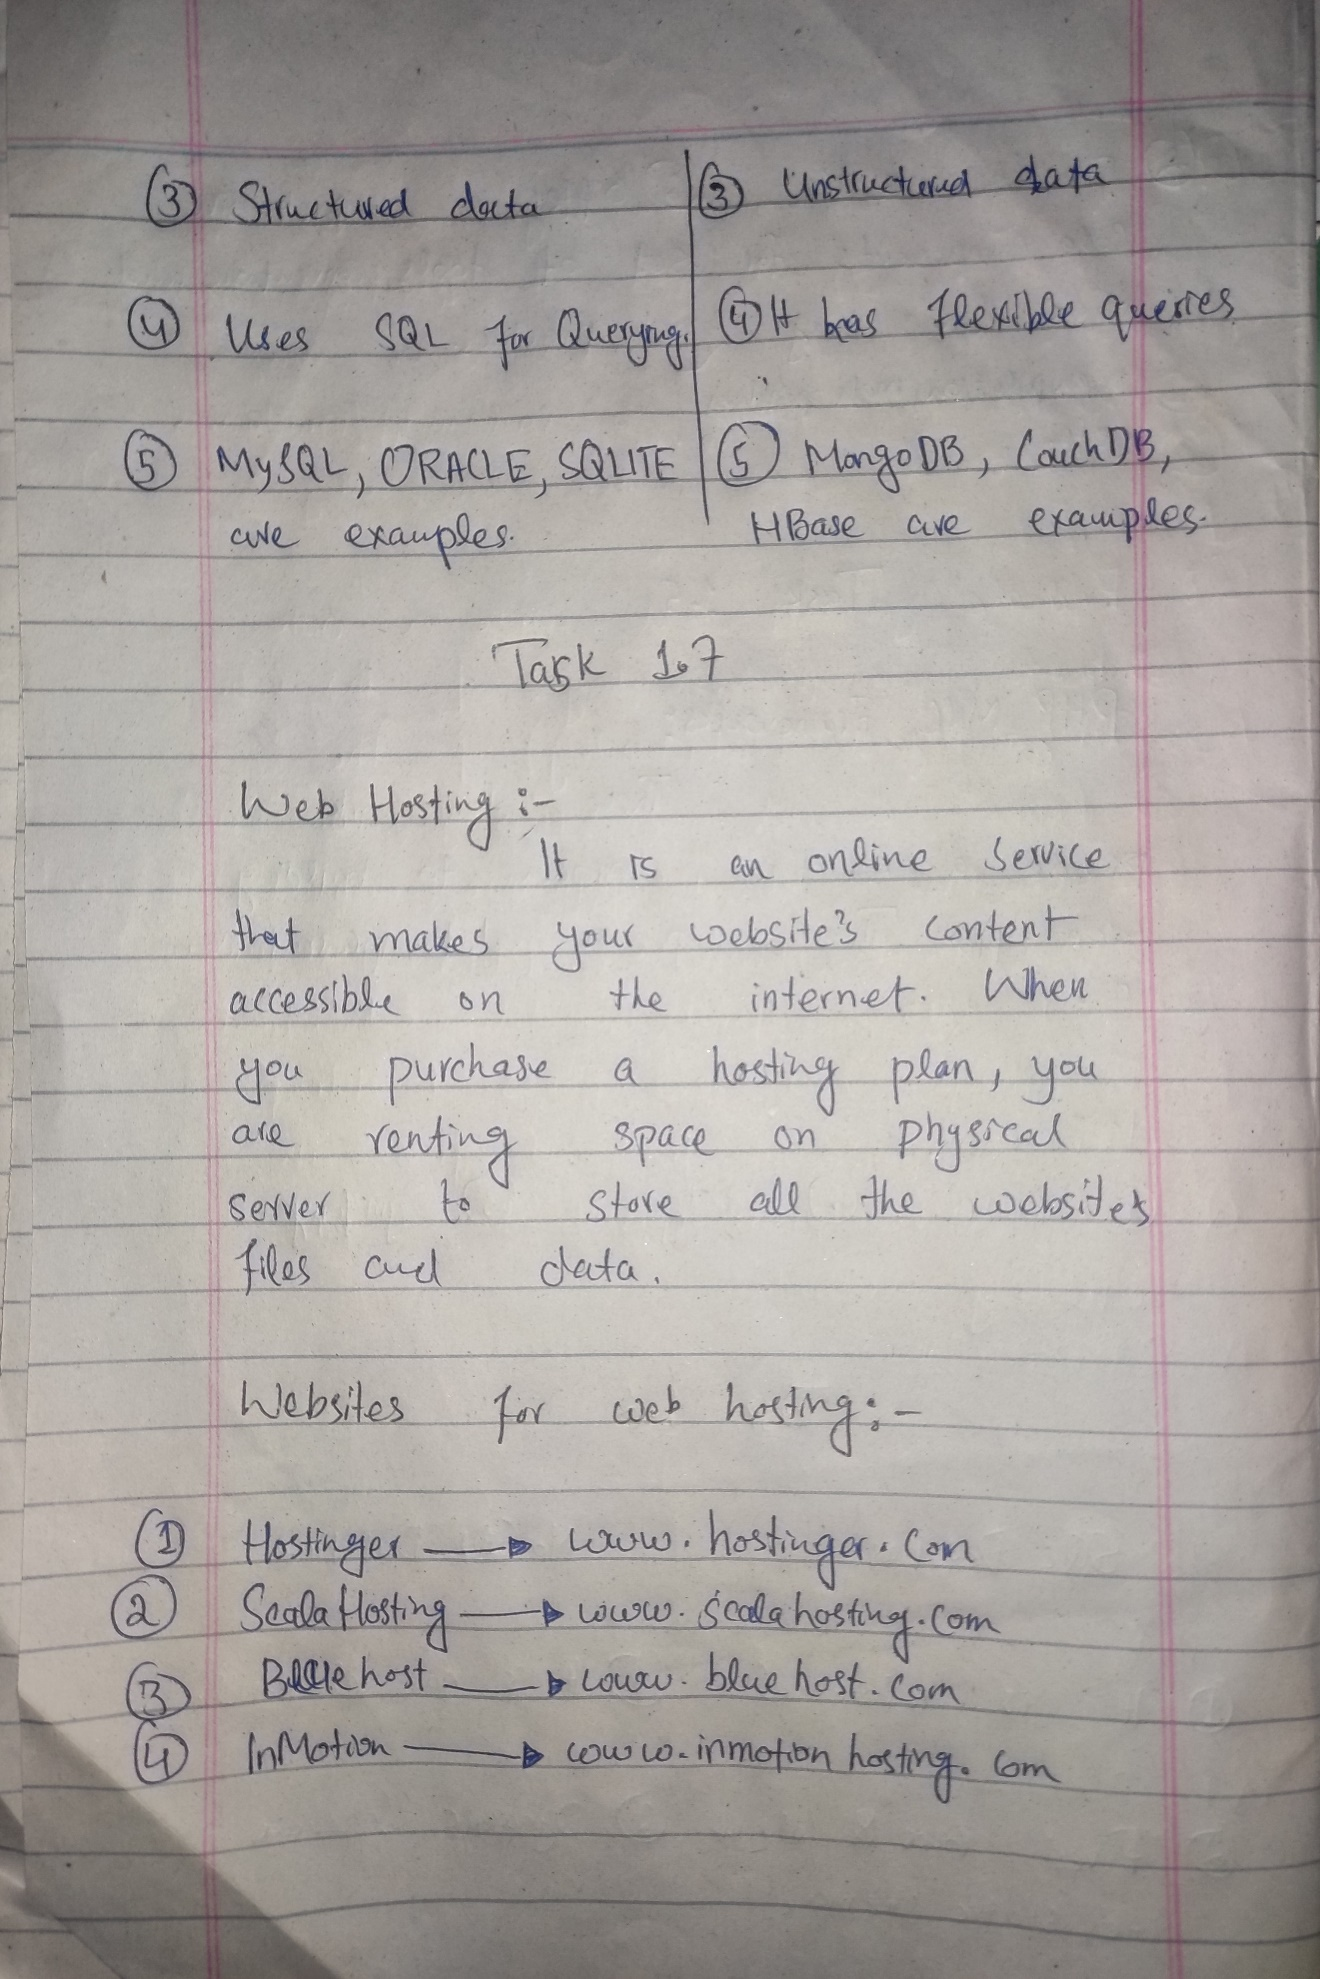 ③ Structured data ③ Unstructured data
④ Uses SQL for Querying. ④ It has flexible queries
⑤ MySQL, ORACLE, SQLITE ⑤ MongoDB, CouchDB,
are examples. HBase are examples.
Task 1.7
Web Hosting :-
It is an online service
that makes your website's content
accessible on the internet. When
you purchase a hosting plan, you
are renting space on physical
server to store all the websites
files and data.
Websites for web hosting:-
① Hostinger → www.hostinger.com
② ScalaHosting → www.scalahosting.com
③ Bluehost → www.bluehost.com
④ InMotion → www.inmotionhosting.com